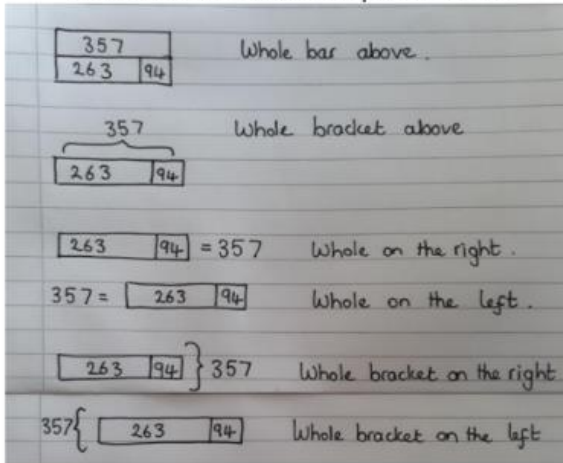 357 Whole bar above.
263 94
357 Whole bracket above
263 94
263 94 = 357 Whole on the right.
357 = 263 94 Whole on the left.
263 94 } 357 Whole bracket on the right
357 { 263 94 Whole bracket on the left